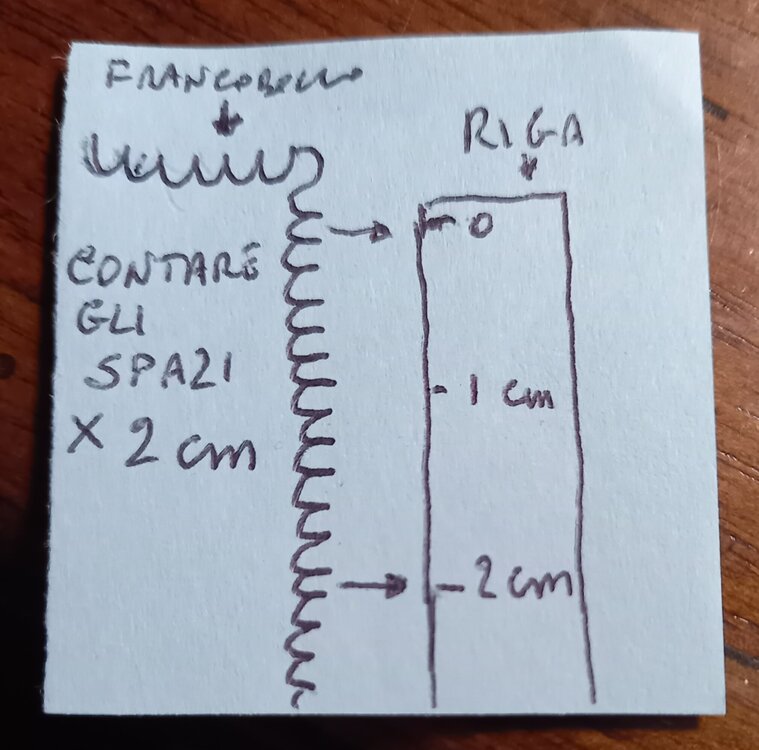 FRANCOBOLLO
RIGA
0
CONTARE
GLI
SPAZI
1 cm
X 2 cm
2 cm